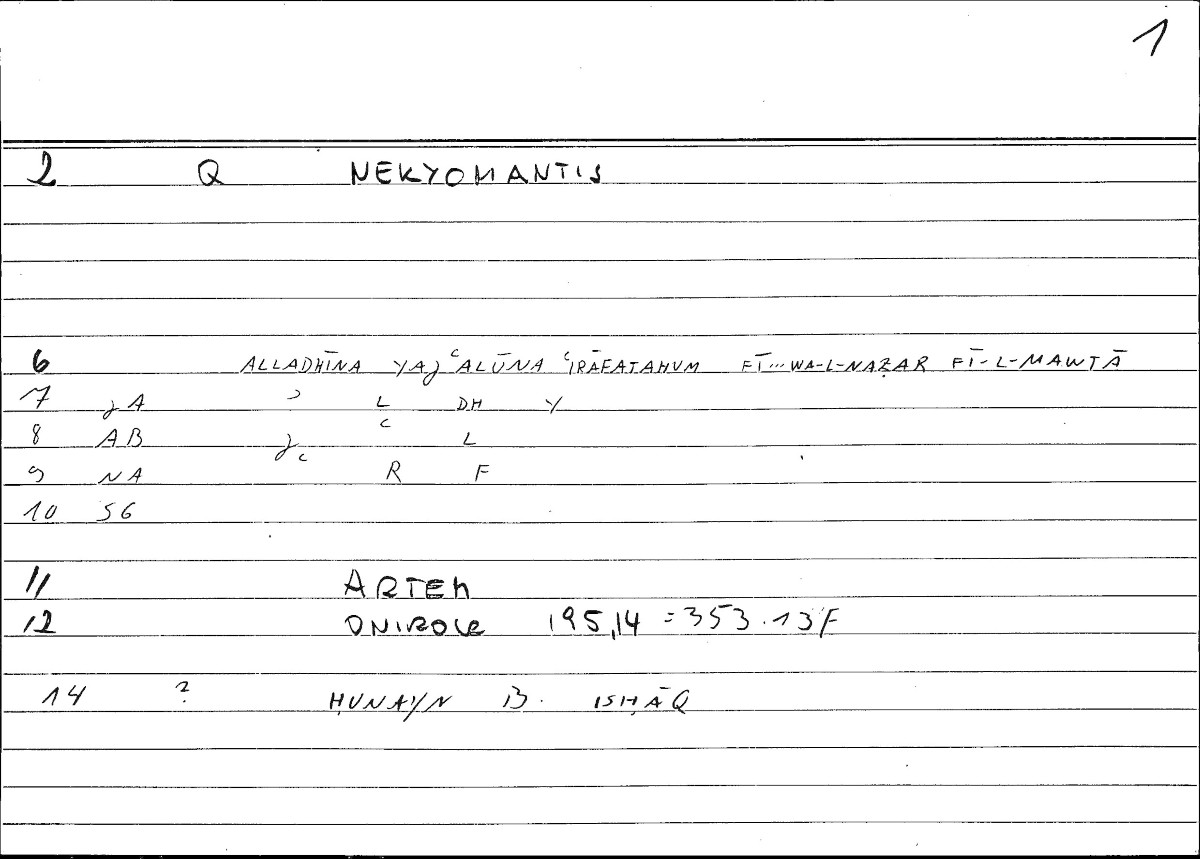 1
2 Q NEKYOMANTIS
6 ALLADHĪNA YAJʿALŪNA ʿIRĀFATAHUM FĪ...WA-L-NAẒAR FĪ-L-MAWTĀ
7 JA ʾ L DH Y
8 AB J ʿ L
9 NA ʿ R F
10 SG
11 ARTEM
12 ONIROCR 195,14 = 353.13F
14 ? ḤUNAYN B. ISḤĀQ